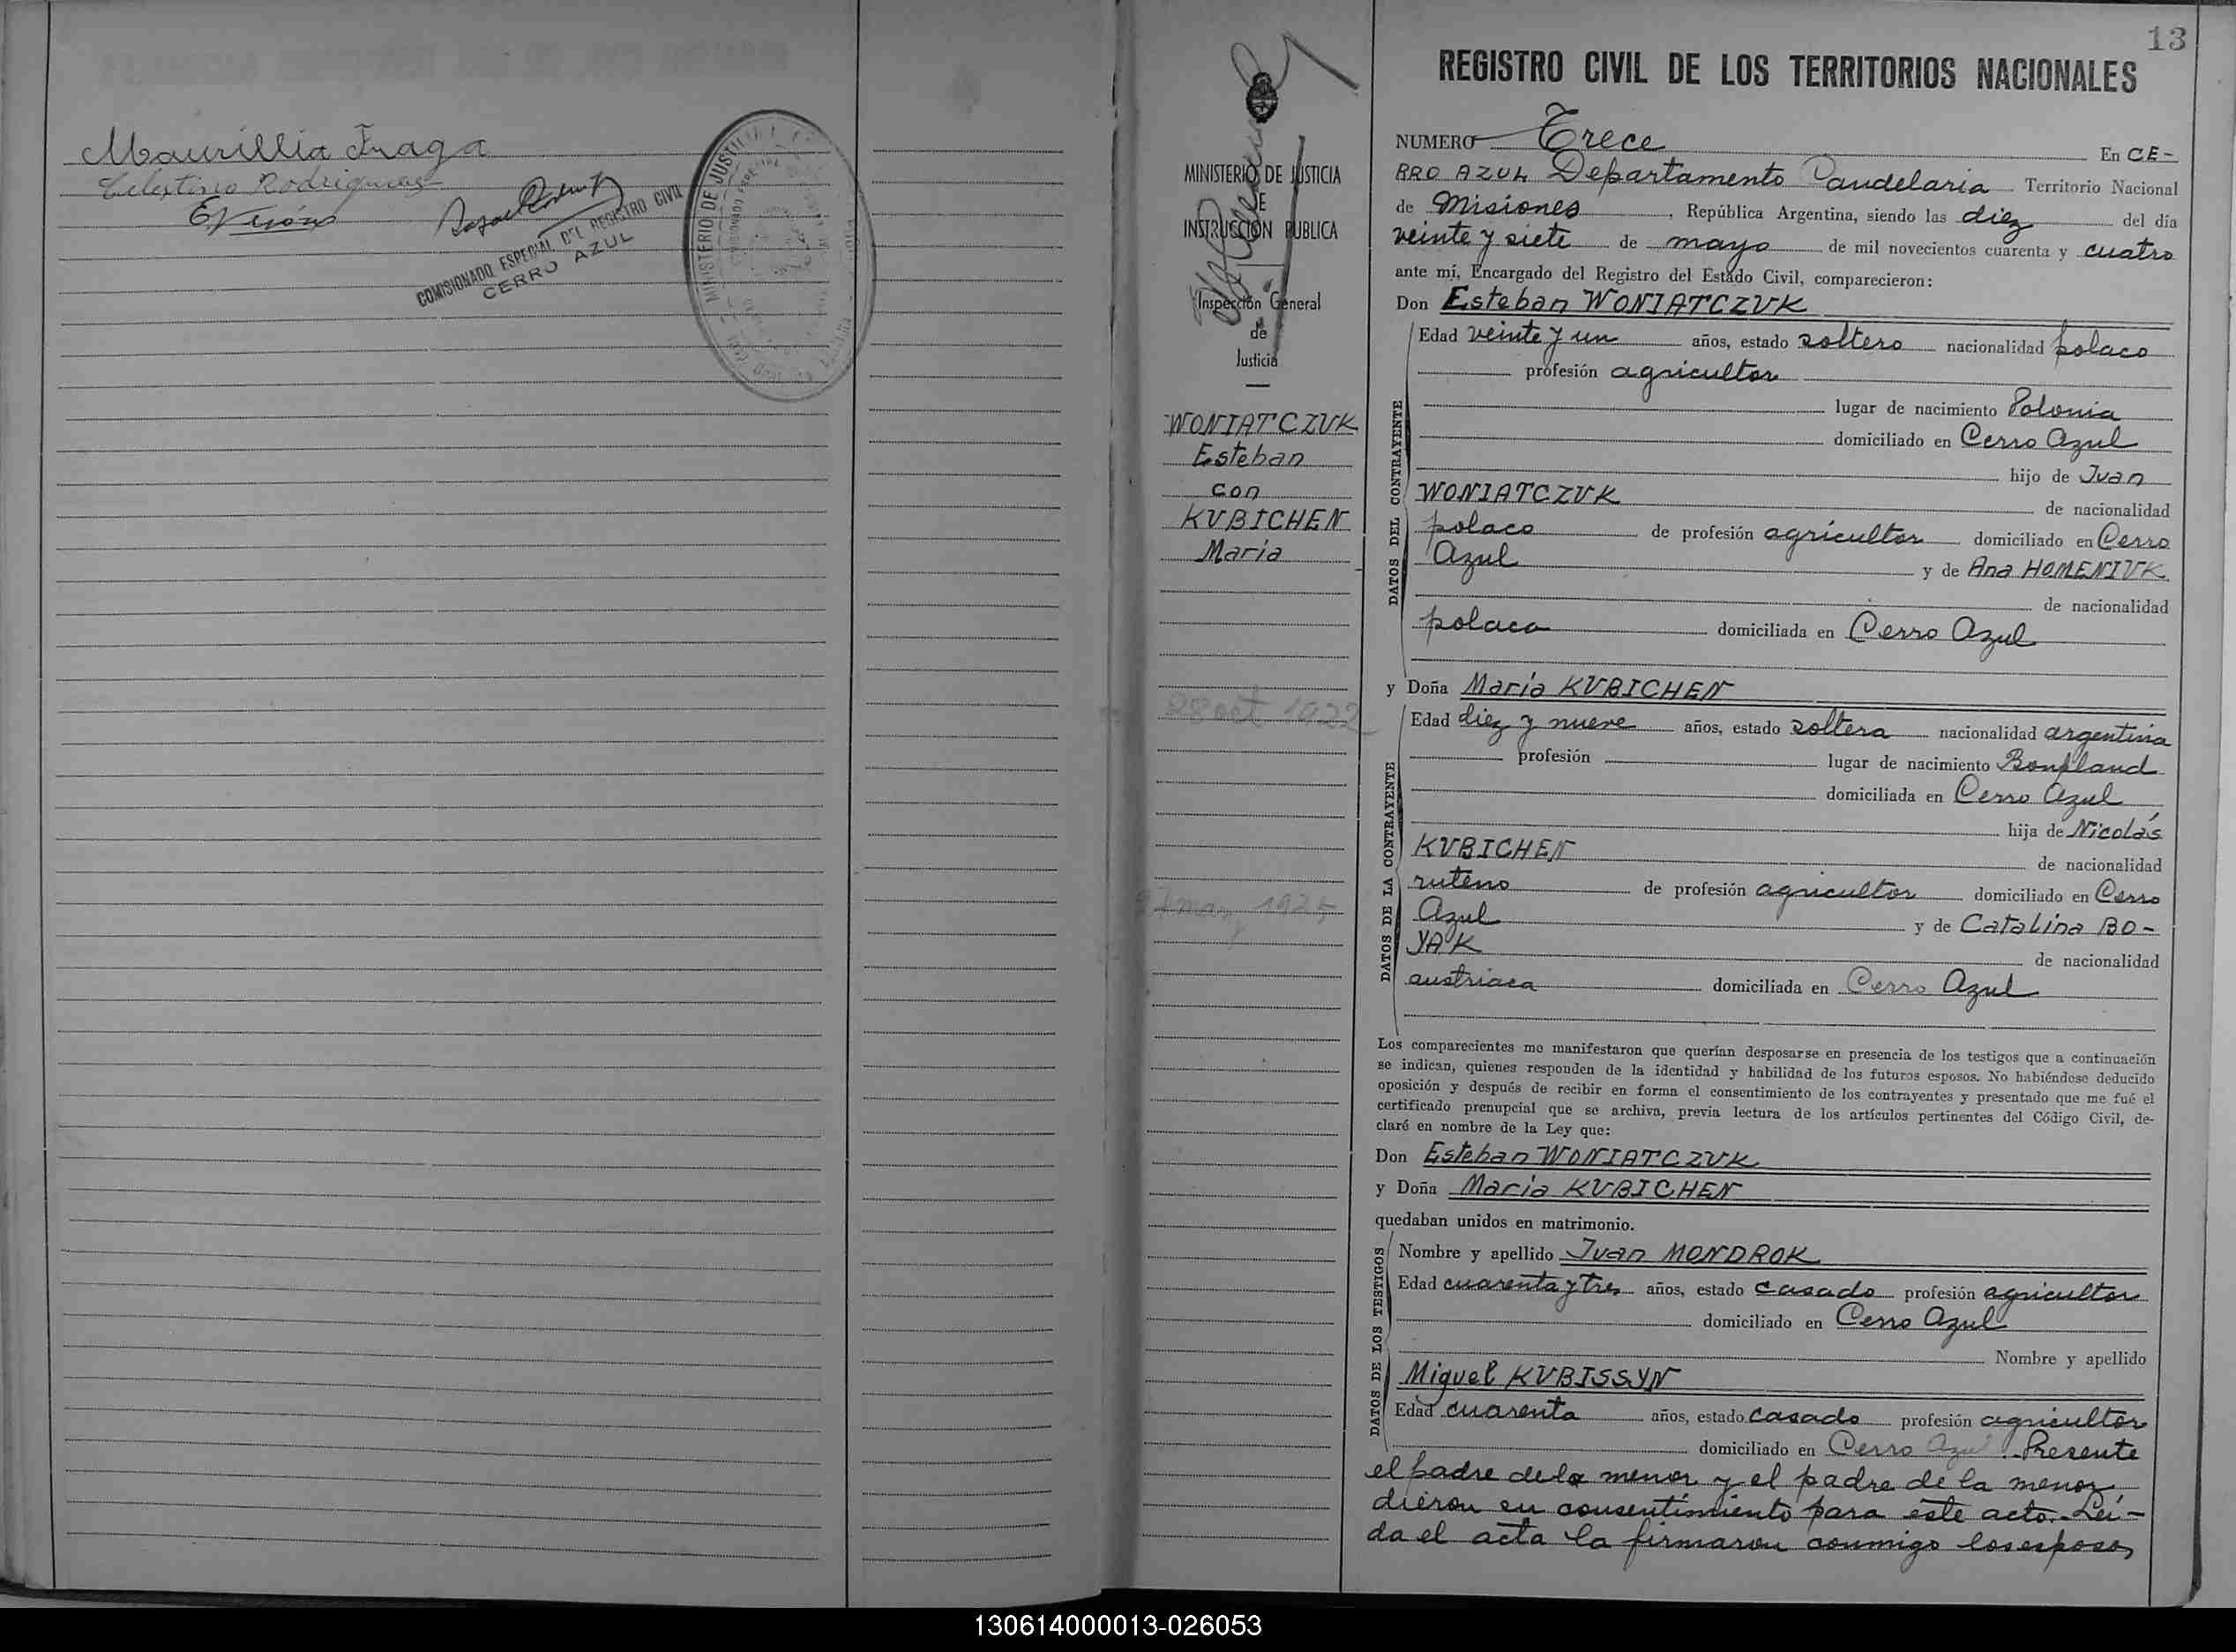 Maurillia Fraga
Celestino Rodrigues
COMISIONADO ESPECIAL DEL REGISTRO CIVIL
CERRO AZUL
MINISTERIO DE JUSTI
13
REGISTRO CIVIL DE LOS TERRITORIOS NACIONALES
MINISTERIO DE JUSTICIA
E
INSTRUCCIÓN PUBLICA
Inspección General
de
Justicia
WONIATCZUK
Esteban
con
KUBICHEN
María
28 oct 1922
27 may 1925
NUMERO Trece En CE-
RRO AZUL Departamento Candelaria Territorio Nacional
de Misiones, República Argentina, siendo las diez del día
veinte y siete de mayo de mil novecientos cuarenta y cuatro
ante mí, Encargado del Registro del Estado Civil, comparecieron:
Don Esteban WONIATCZUK
DATOS DEL CONTRAYENTE
Edad veinte y un años, estado soltero nacionalidad polaco
profesión agricultor
lugar de nacimiento Polonia
domiciliado en Cerro Azul
hijo de Juan
WONIATCZUK de nacionalidad
polaco de profesión agricultor domiciliado en Cerro
Azul y de Ana HOMENIUK
de nacionalidad
polaca domiciliada en Cerro Azul
y Doña María KUBICHEN
DATOS DE LA CONTRAYENTE
Edad diez y nueve años, estado soltera nacionalidad argentina
profesión lugar de nacimiento Bonpland
domiciliada en Cerro Azul
hija de Nicolás
KUBICHEN de nacionalidad
ruteno de profesión agricultor domiciliado en Cerro
Azul y de Catalina BO-
YAK de nacionalidad
austriaca domiciliada en Cerro Azul
Los comparecientes me manifestaron que querían desposarse en presencia de los testigos que a continuación
se indican, quienes responden de la identidad y habilidad de los futuros esposos. No habiéndose deducido
oposición y después de recibir en forma el consentimiento de los contrayentes y presentado que me fué el
certificado prenupcial que se archiva, previa lectura de los artículos pertinentes del Código Civil, de-
claré en nombre de la Ley que:
Don Esteban WONIATCZUK
y Doña María KUBICHEN
quedaban unidos en matrimonio.
DATOS DE LOS TESTIGOS
Nombre y apellido Juan MONDROK
Edad cuarenta y tres años, estado casado profesión agricultor
domiciliado en Cerro Azul
Nombre y apellido
Miguel KUBISSYN
Edad cuarenta años, estado casado profesión agricultor
domiciliado en Cerro Azul. Presente
el padre dela menor y el padre de la menor,
dieron su consentimiento para este acto. Leí-
da el acta la firmaron conmigo los esposos
130614000013-026053